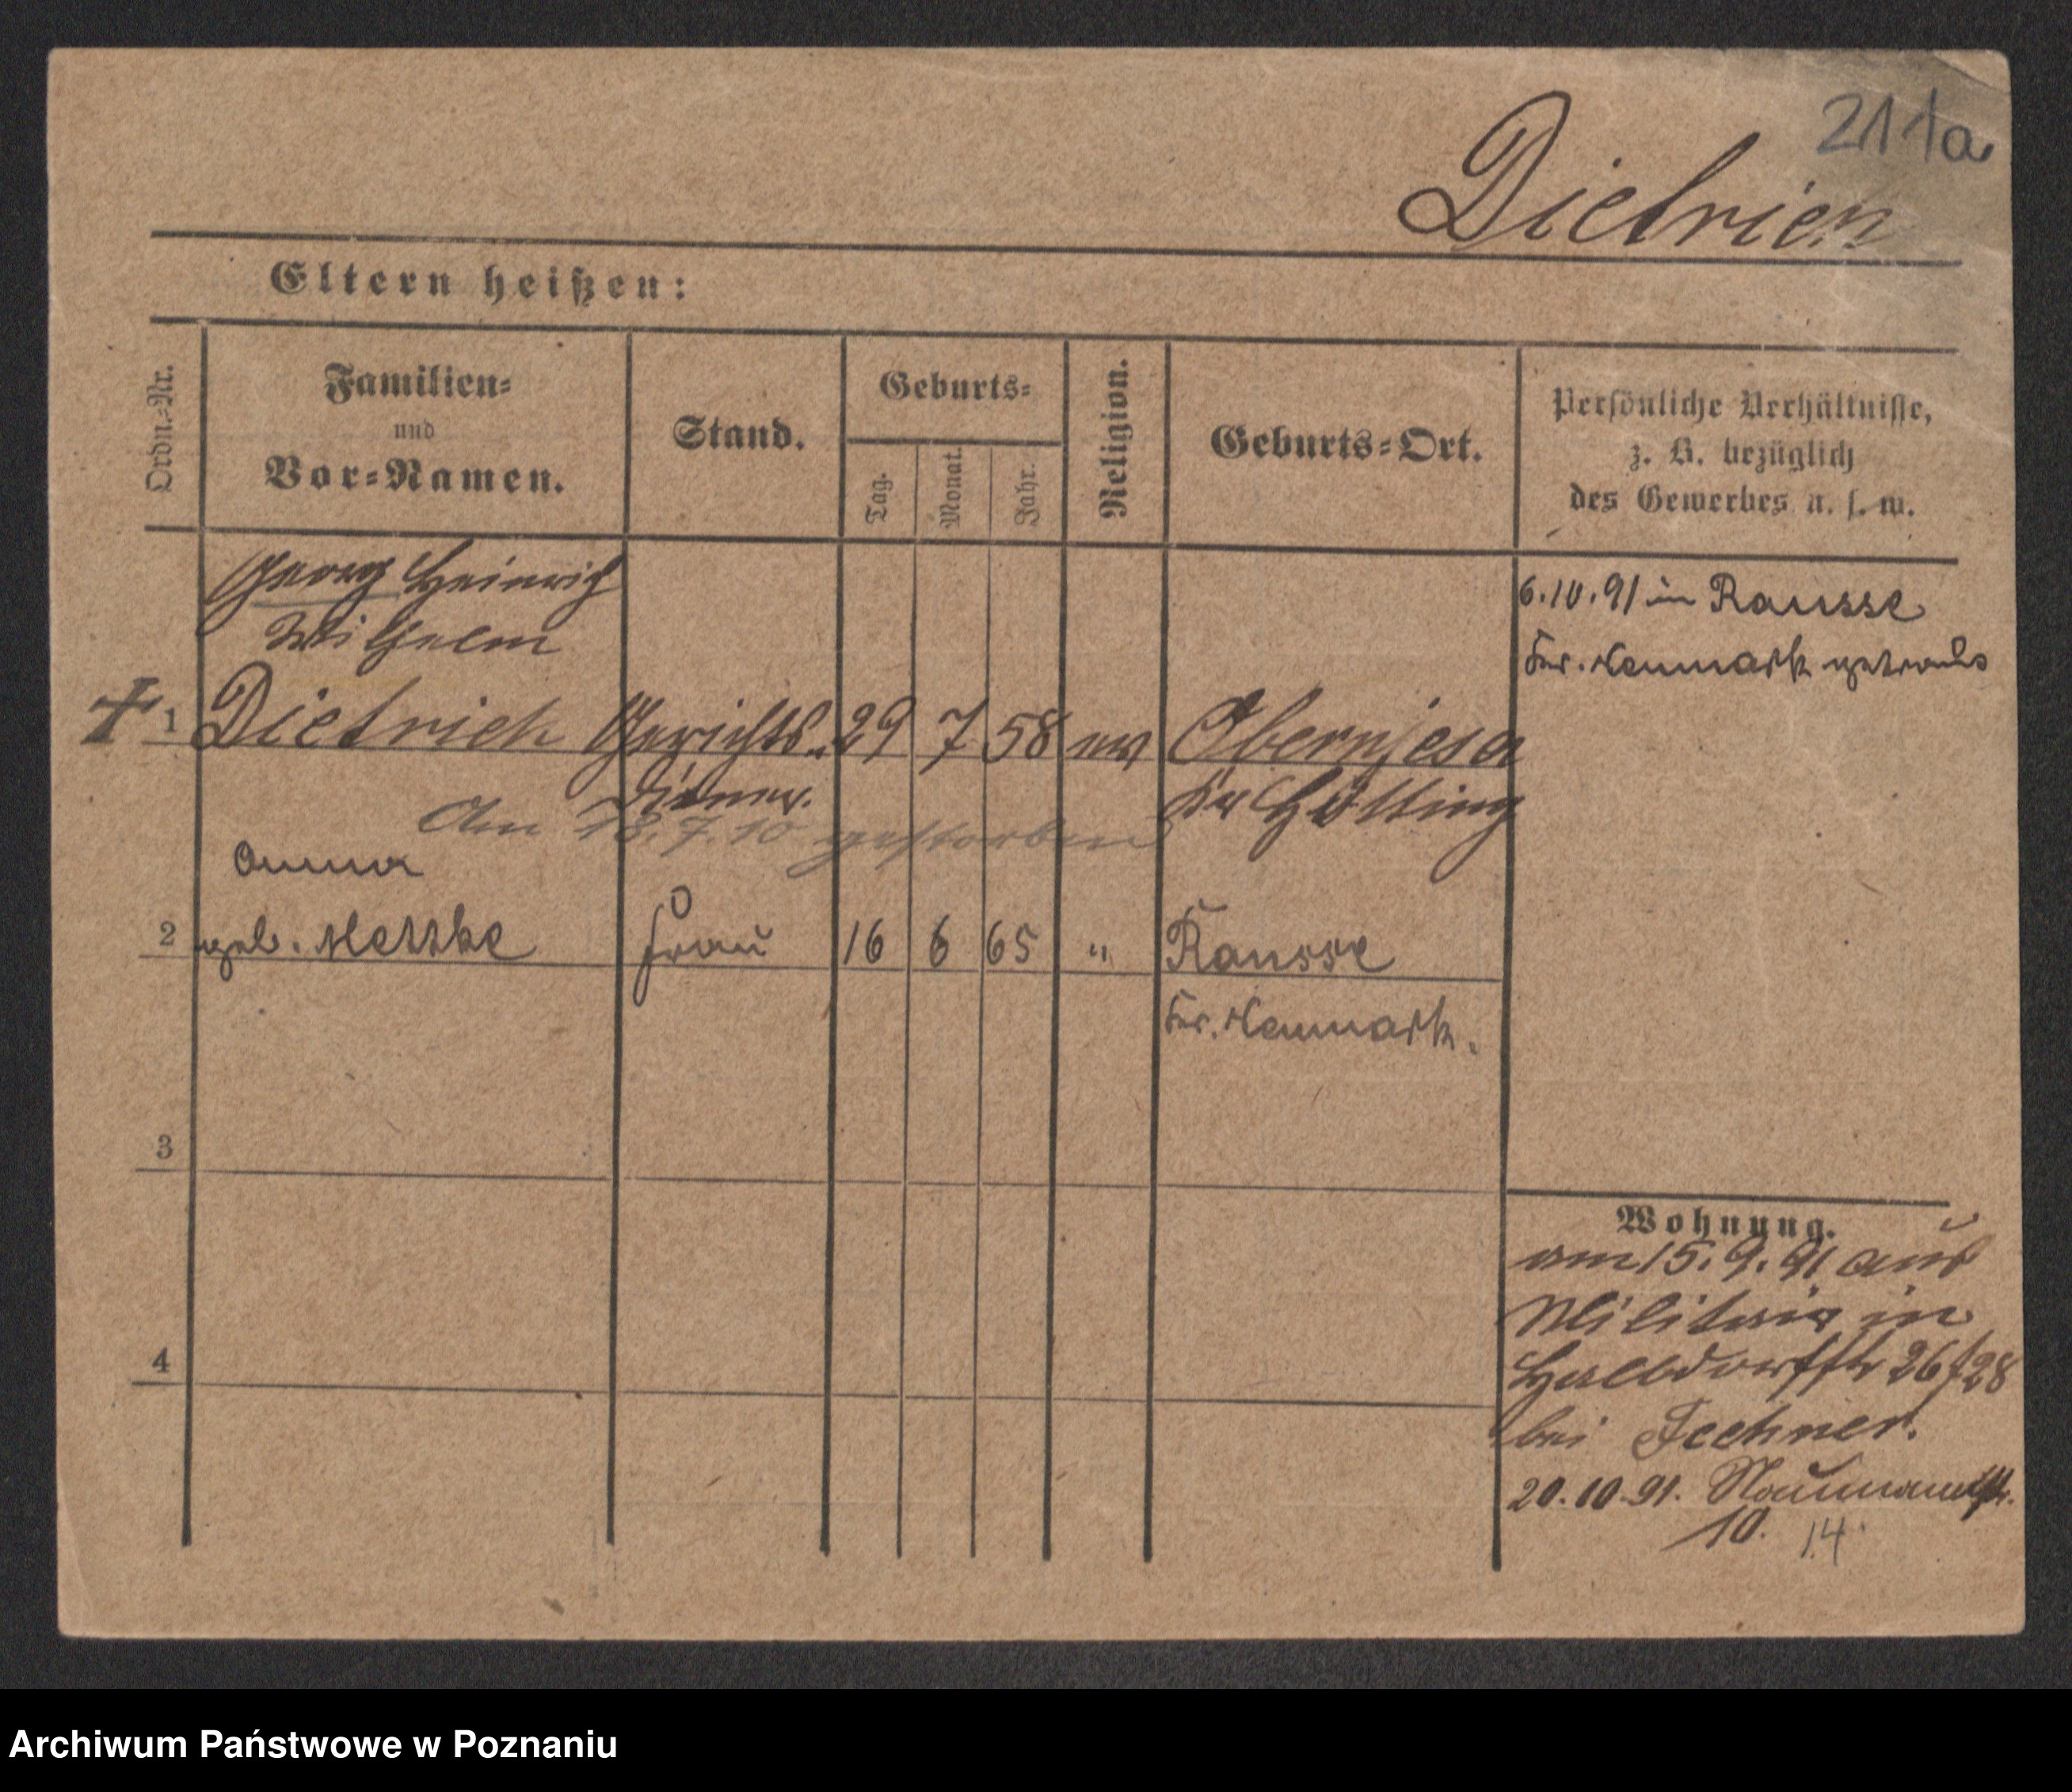 211a
Dietrich
Eltern heißen:
Ordn.-Nr.
Familien-
und
Vor-Namen.
Stand.
Geburts-
Tag.
Monat.
Jahr.
Religion.
Geburts-Ort.
Persönliche Verhältnisse,
z. B. bezüglich
des Gewerbes u. s. w.
Georg Heinrich
Wilhelm
+ 1 Dietrich Gerichts- 29 7 58 ev Obernjesa
Diener. Kr Götting
Am 13.7.10 gestorben
Anna
2 geb. Mettke Frau 16 6 65 " Rausse
Kr. Neumarkt.
3
4
6.10.91 in Rausse
Kr. Neumarkt getraut
Wohnung.
am 15.9.91 aus
Militair in
Halbdorffstr 26/28
bei Fechner.
20.10.91. Naumannstr.
10. 14
Archiwum Państwowe w Poznaniu